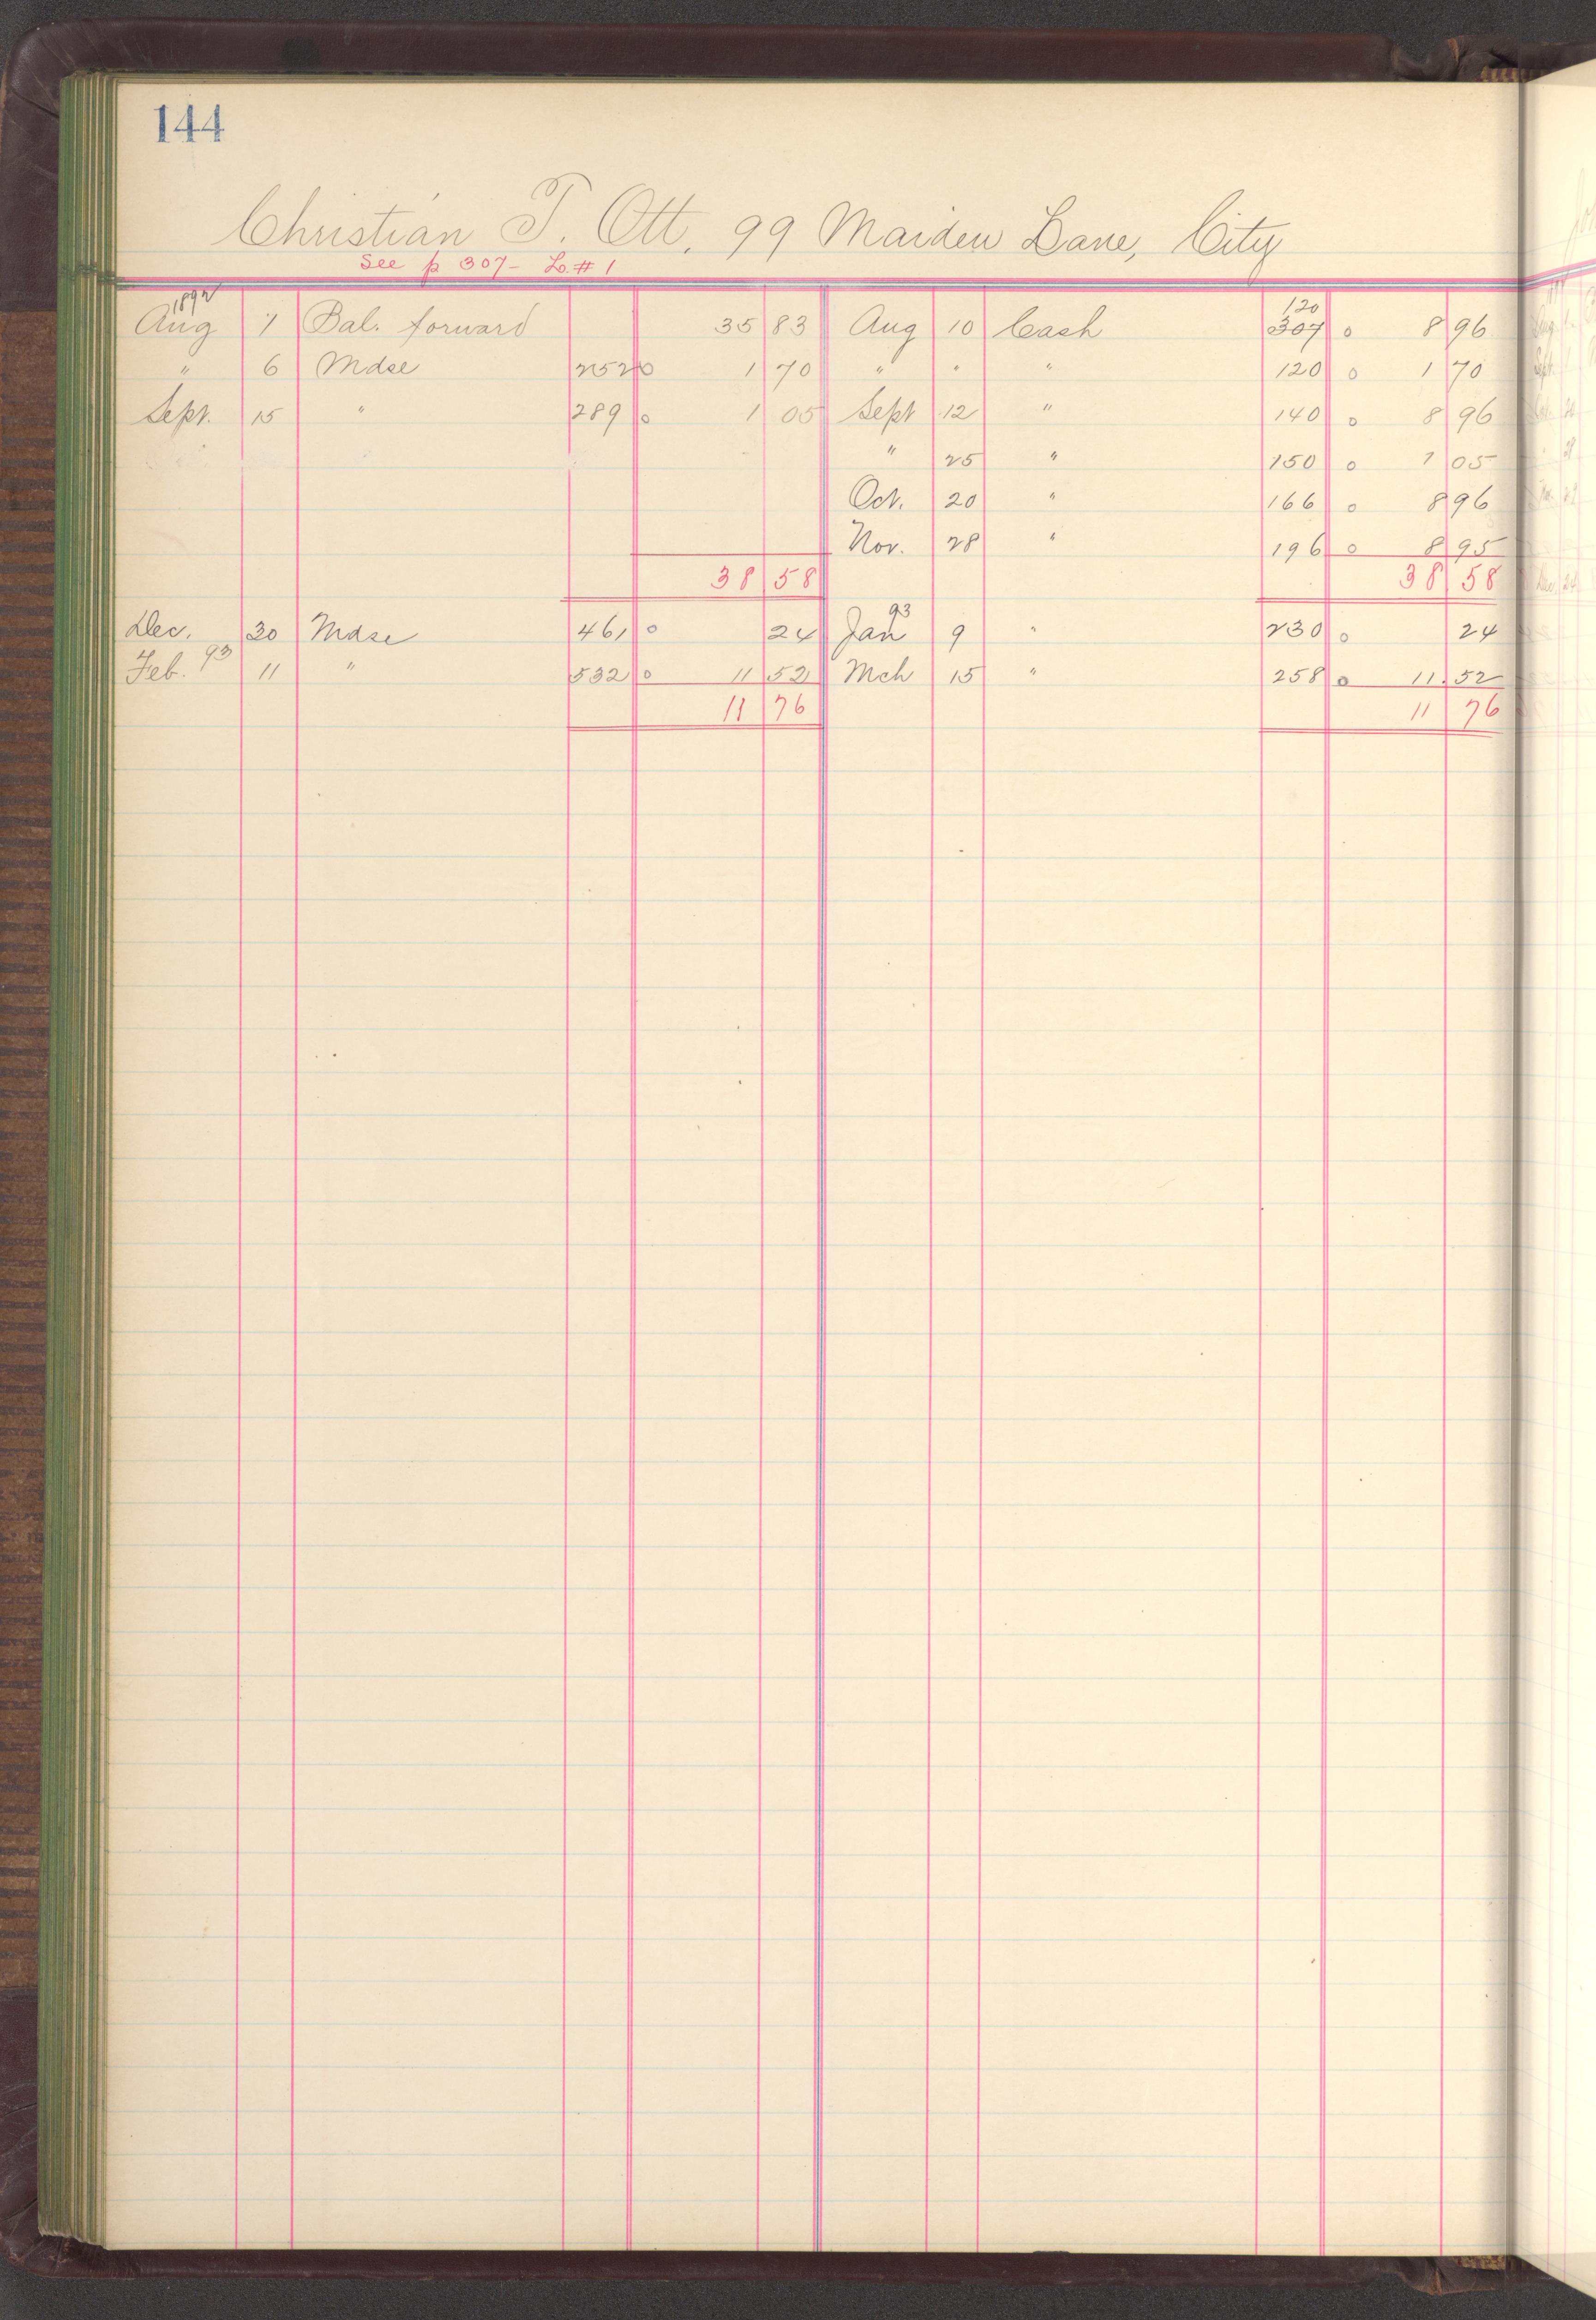 144
Christian T. Ott, 99 Maiden Lane, City
See p 307 - L. # 1
1892 120
Aug 1 Bal. forward 35 83 Aug 10 Cash 307 o 8 96
" 6 Mdse 252 o 1 70 " " " 120 o 1 70
Sept. 15 " 289 o 1 05 Sept 12 " 140 o 8 96
" 25 " 150 o 1 05
Oct. 20 " 166 o 8 96
Nov. 28 " 196 o 8 95
38 58 38 58
Dec. 30 Mdse 461 o 24 Jan 93 9 " 230 o 24
Feb. 93 11 " 532 o 11 52 Mch 15 " 258 o 11.52
11 76 11 76